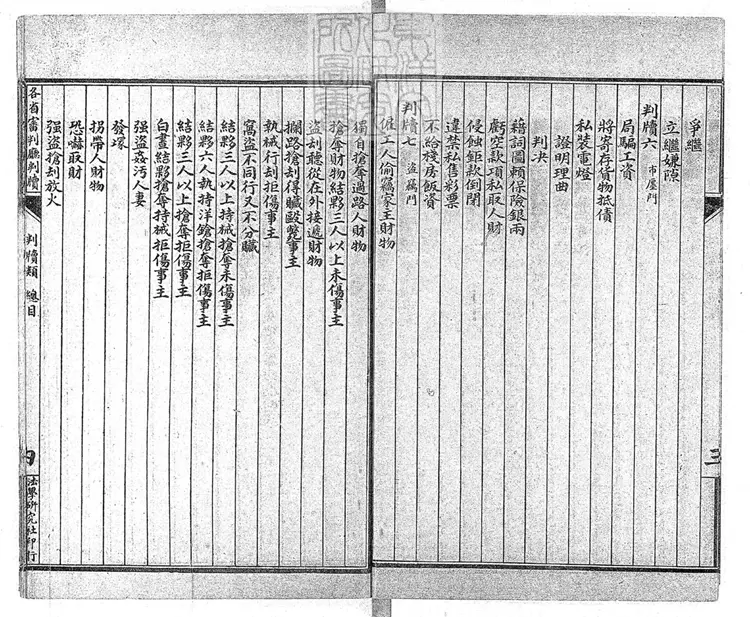 爭繼
立繼嫌隙
判牘六 市廛門
局騙工資
將寄存貨物抵債
私裝電燈
證明理曲
判決
藉詞圖賴保險銀兩
虧空款項私取人財
侵蝕鉅款倒閉
違禁私售彩票
不給棧房飯資
判牘七 盜竊門
雇工人偷竊家主財物
獨自搶奪過路人財物
搶奪財物結夥三人以上未傷事主
盜刦聽從在外接遞財物
攔路搶刦得贓毆斃事主
執械行刦拒傷事主
窩盜不同行又不分贓
結夥三人以上持械搶奪未傷事主
結夥六人執持洋鎗搶奪拒傷事主
結夥三人以上搶奪拒傷事主
白晝結夥搶奪持械拒傷事主
強盜姦污人妻
發塚
拐帶人財物
恐嚇取財
強盜搶刦放火
各省審判廳判牘
判牘類 總目
三
法學研究社印行